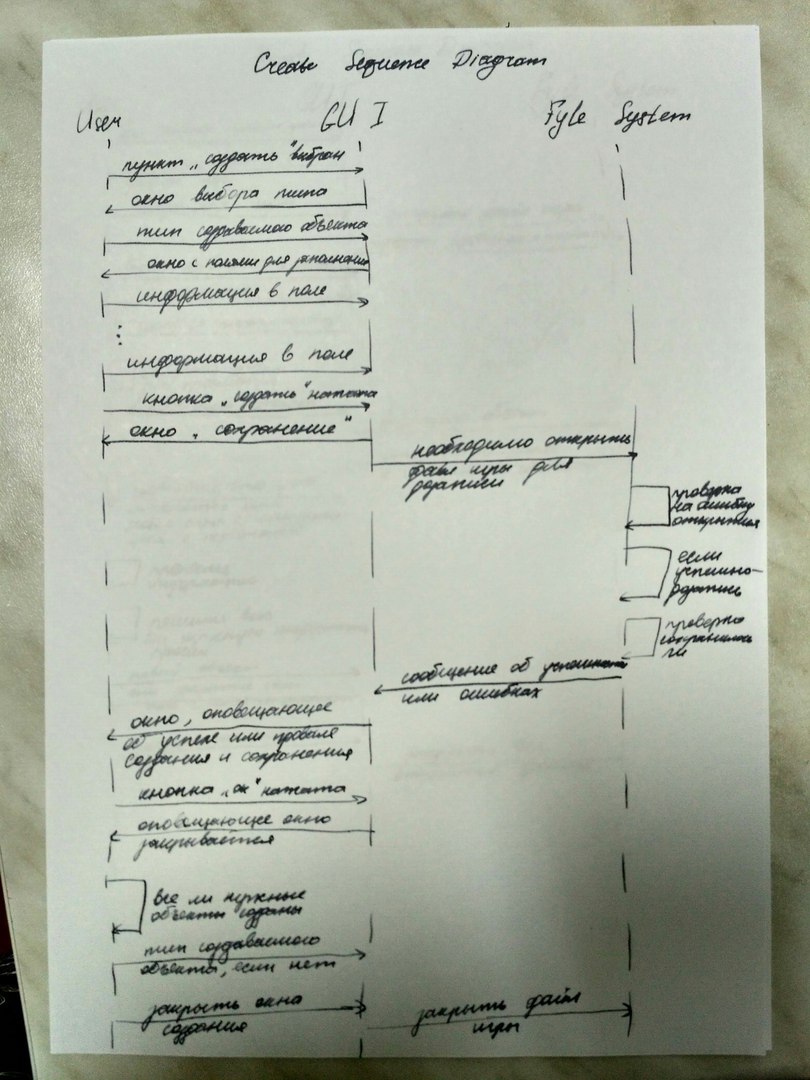 Create Sequence Diagram
User GUI Fyle System
пункт „создать" выбран
окно выбора типа
тип создаваемого объекта
окно с полями для заполнения
информация в поле
информация в поле
кнопка „создать" нажата
окно „сохранение"
необходимо открыть
файл игры для
дозаписи
проверка
на ошибку
открытия
если
успешно-
дозапись
проверка
сохранилось
ли
сообщение об успешности
или ошибках
окно, оповещающее
об успехе или провале
создания и сохранения
кнопка „ок" нажата
оповещающее окно
закрывается
все ли нужные
объекты созданы
тип создаваемого
объекта, если нет
закрыть окно
создания
закрыть файл
игры